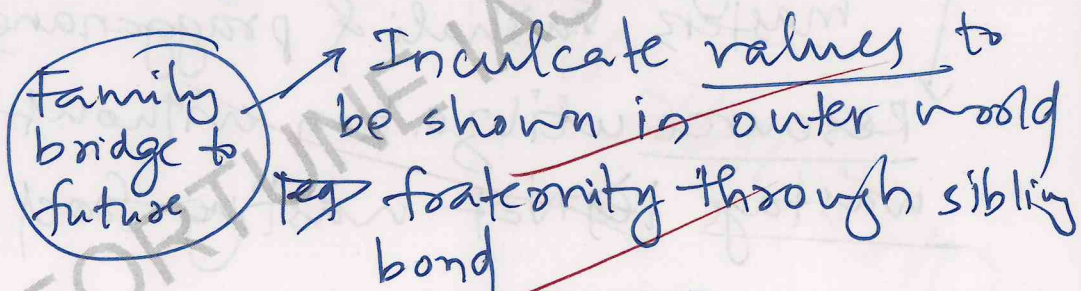 Family
bridge to
future
→ Inculcate values to
be shown in outer world
eg fraternity through sibling
bond
FORTUNE IAS